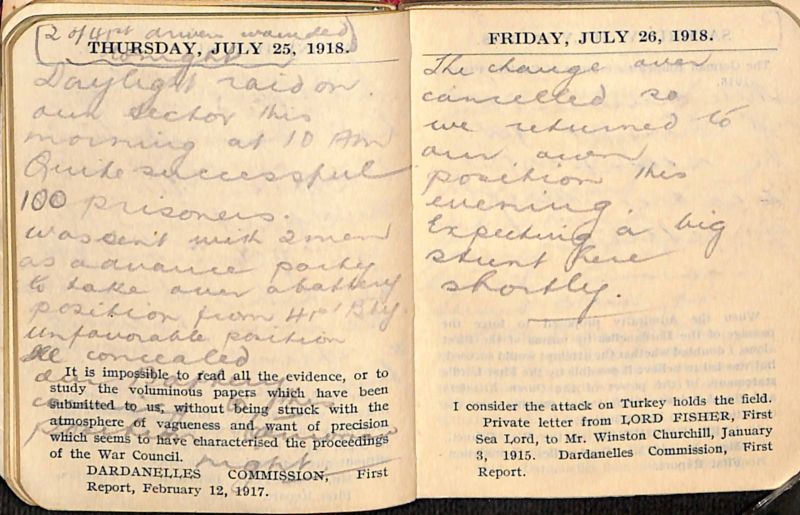 (2 of 41st drivers wounded
tonight)
THURSDAY, JULY 25, 1918.
Daylight raid on
our sector this
morning at 10 AM
Quite successful
100 prisoners.
was sent with 2 men
as advance party
to take over a battery
position from 41st Bty.
unfavorable position
concealed
It is impossible to read all the evidence, or to
study the voluminous papers which have been
submitted to us, without being struck with the
atmosphere of vagueness and want of precision
which seems to have characterised the proceedings
of the War Council.
night
DARDANELLES COMMISSION, First
Report, February 12, 1917.
FRIDAY, JULY 26, 1918.
The change over
cancelled so
we returned to
our own
position this
evening.
Expecting a big
stunt here
shortly.
I consider the attack on Turkey holds the field.
Private letter from LORD FISHER, First
Sea Lord, to Mr. Winston Churchill, January
3, 1915. Dardanelles Commission, First
Report.